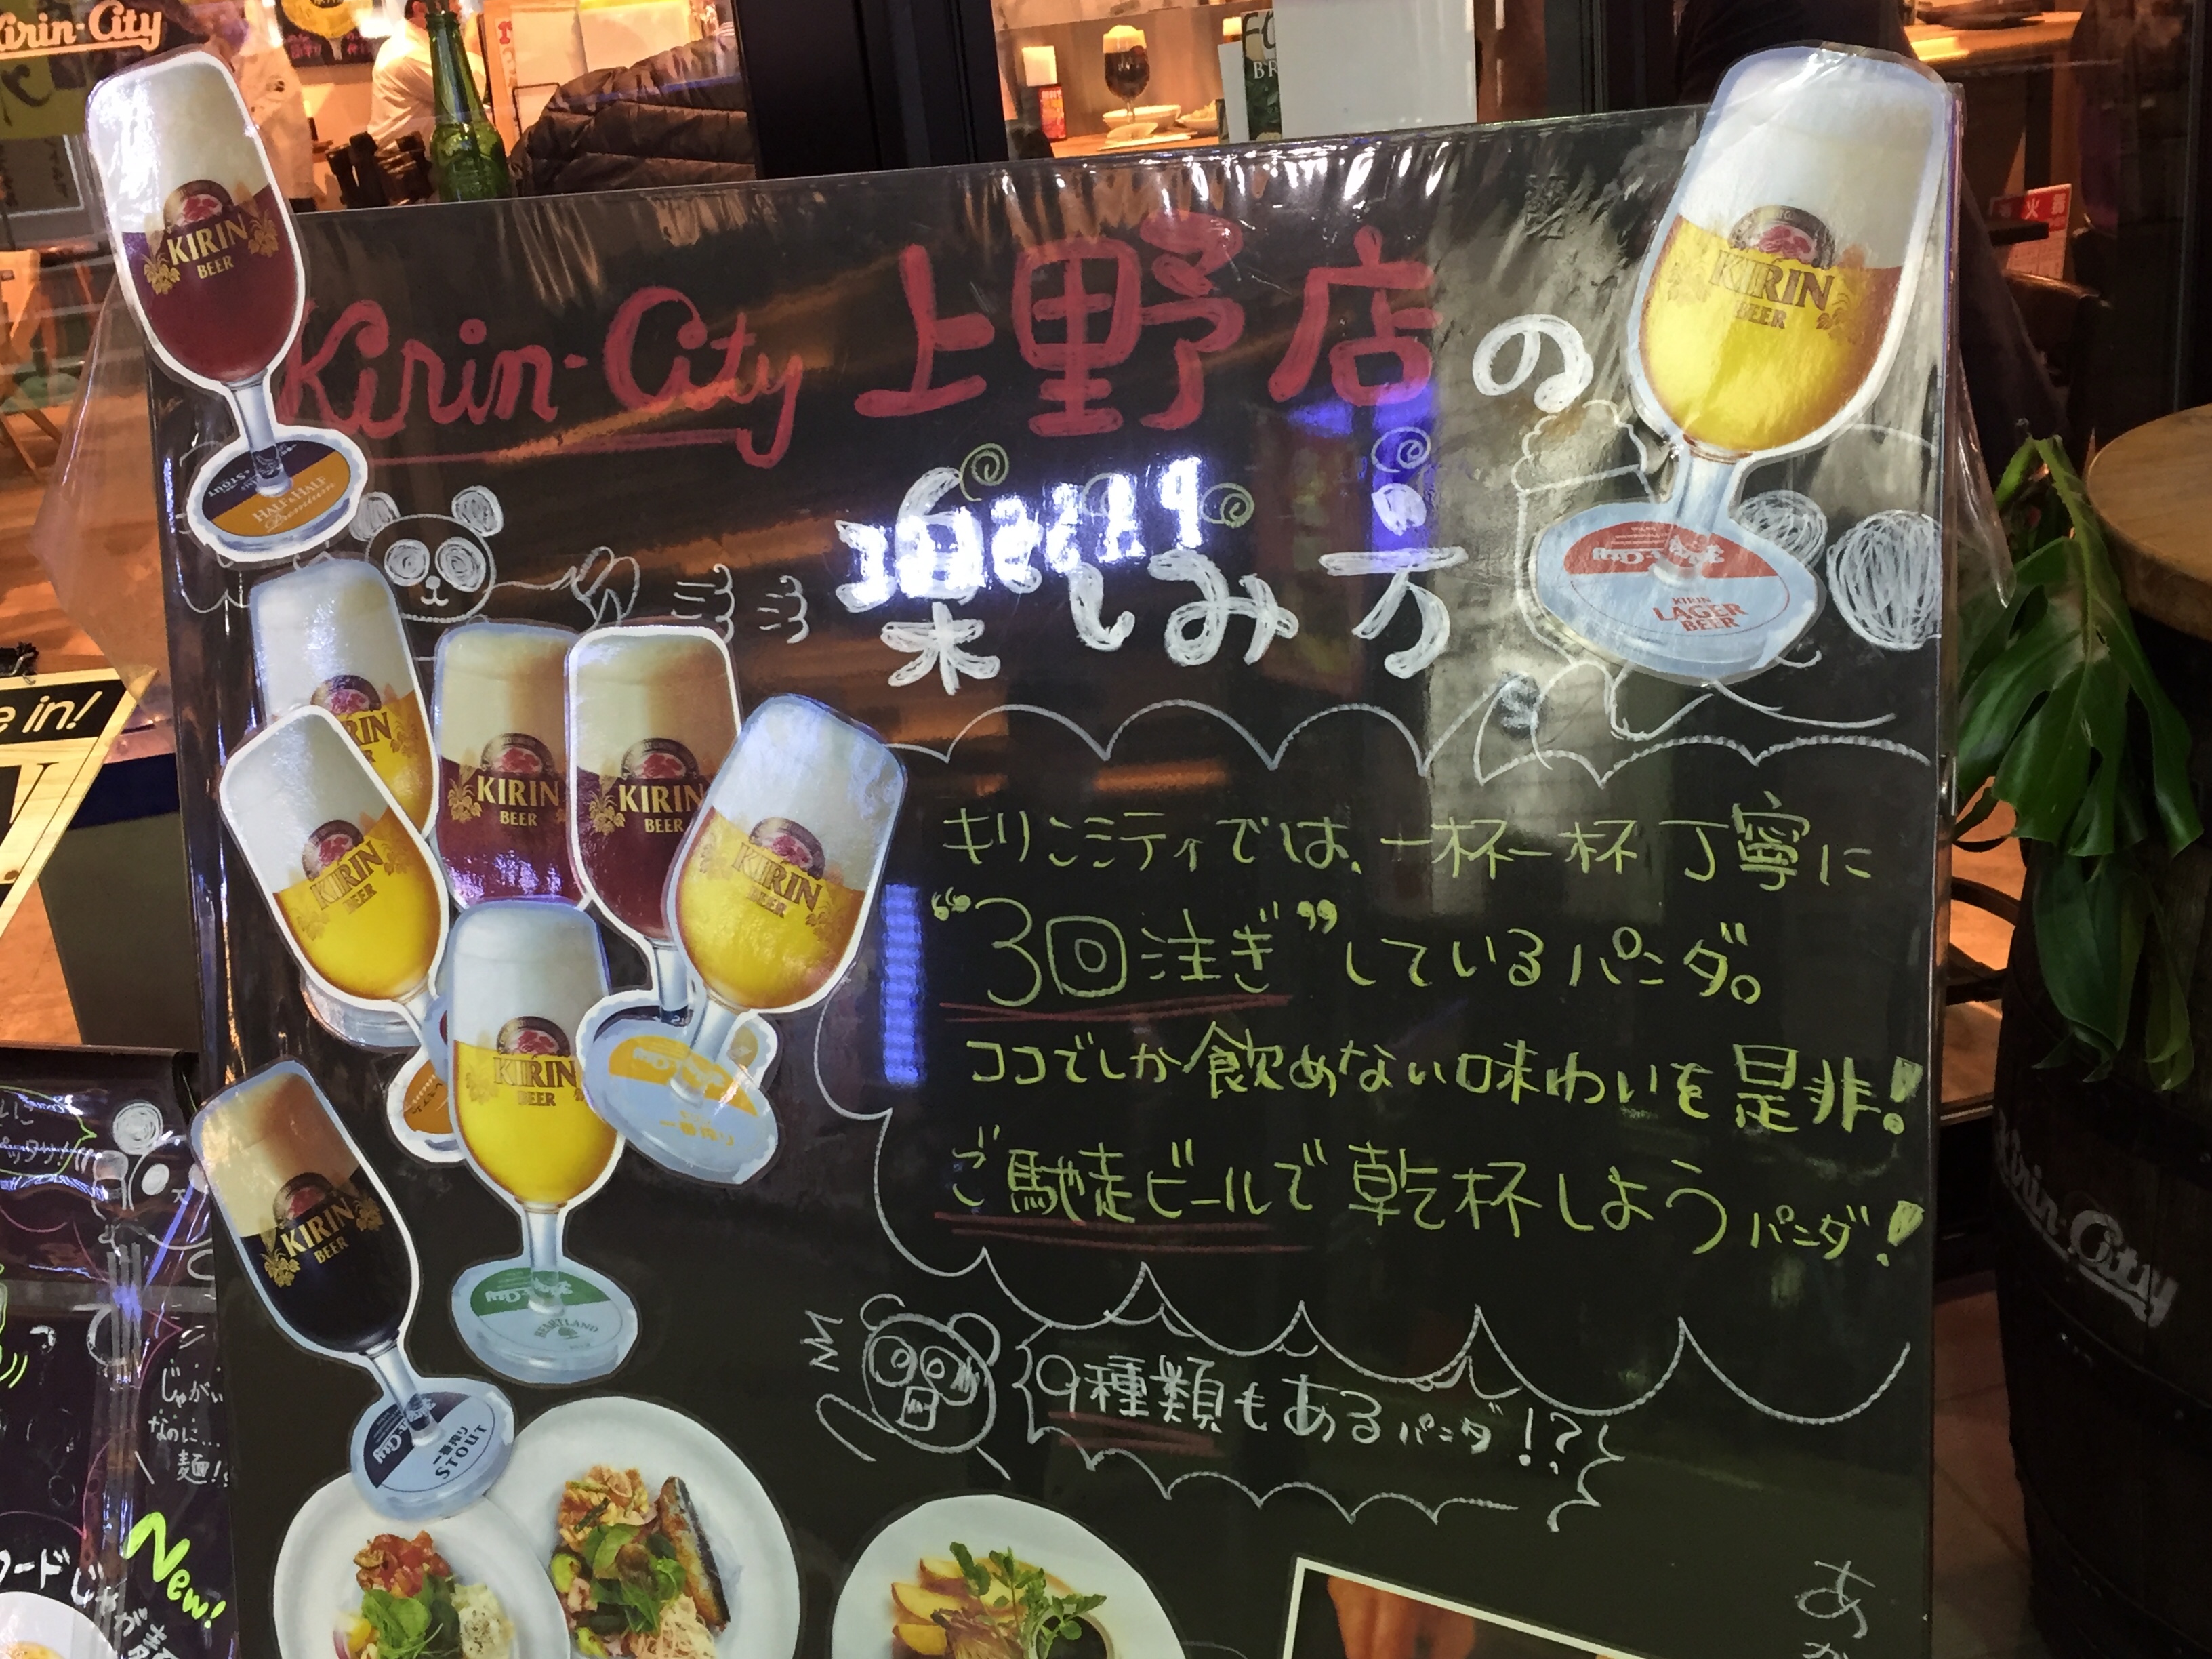 Kirin-City
Kirin-City 上野店の
楽しみ方
キリンシティでは、一杯一杯丁寧に
“3回注ぎ”しているパンダ。
ココでしか飲めない味わいを是非!
ご馳走ビールで乾杯しようパンダ!
9種類もあるパンダ!?
KIRIN
BEER
HALF & HALF
Premium
KIRIN
BEER
KIRIN
LAGER
BEER
KIRIN
BEER
KIRIN
BEER
KIRIN
BEER
KIRIN
BEER
KIRIN
BEER
一番搾り
KIRIN
BEER
HEARTLAND
KIRIN
BEER
一番搾り
STOUT
e in!
じゃがい
なのに…
麺!
New!
Kirin-City
あ
か